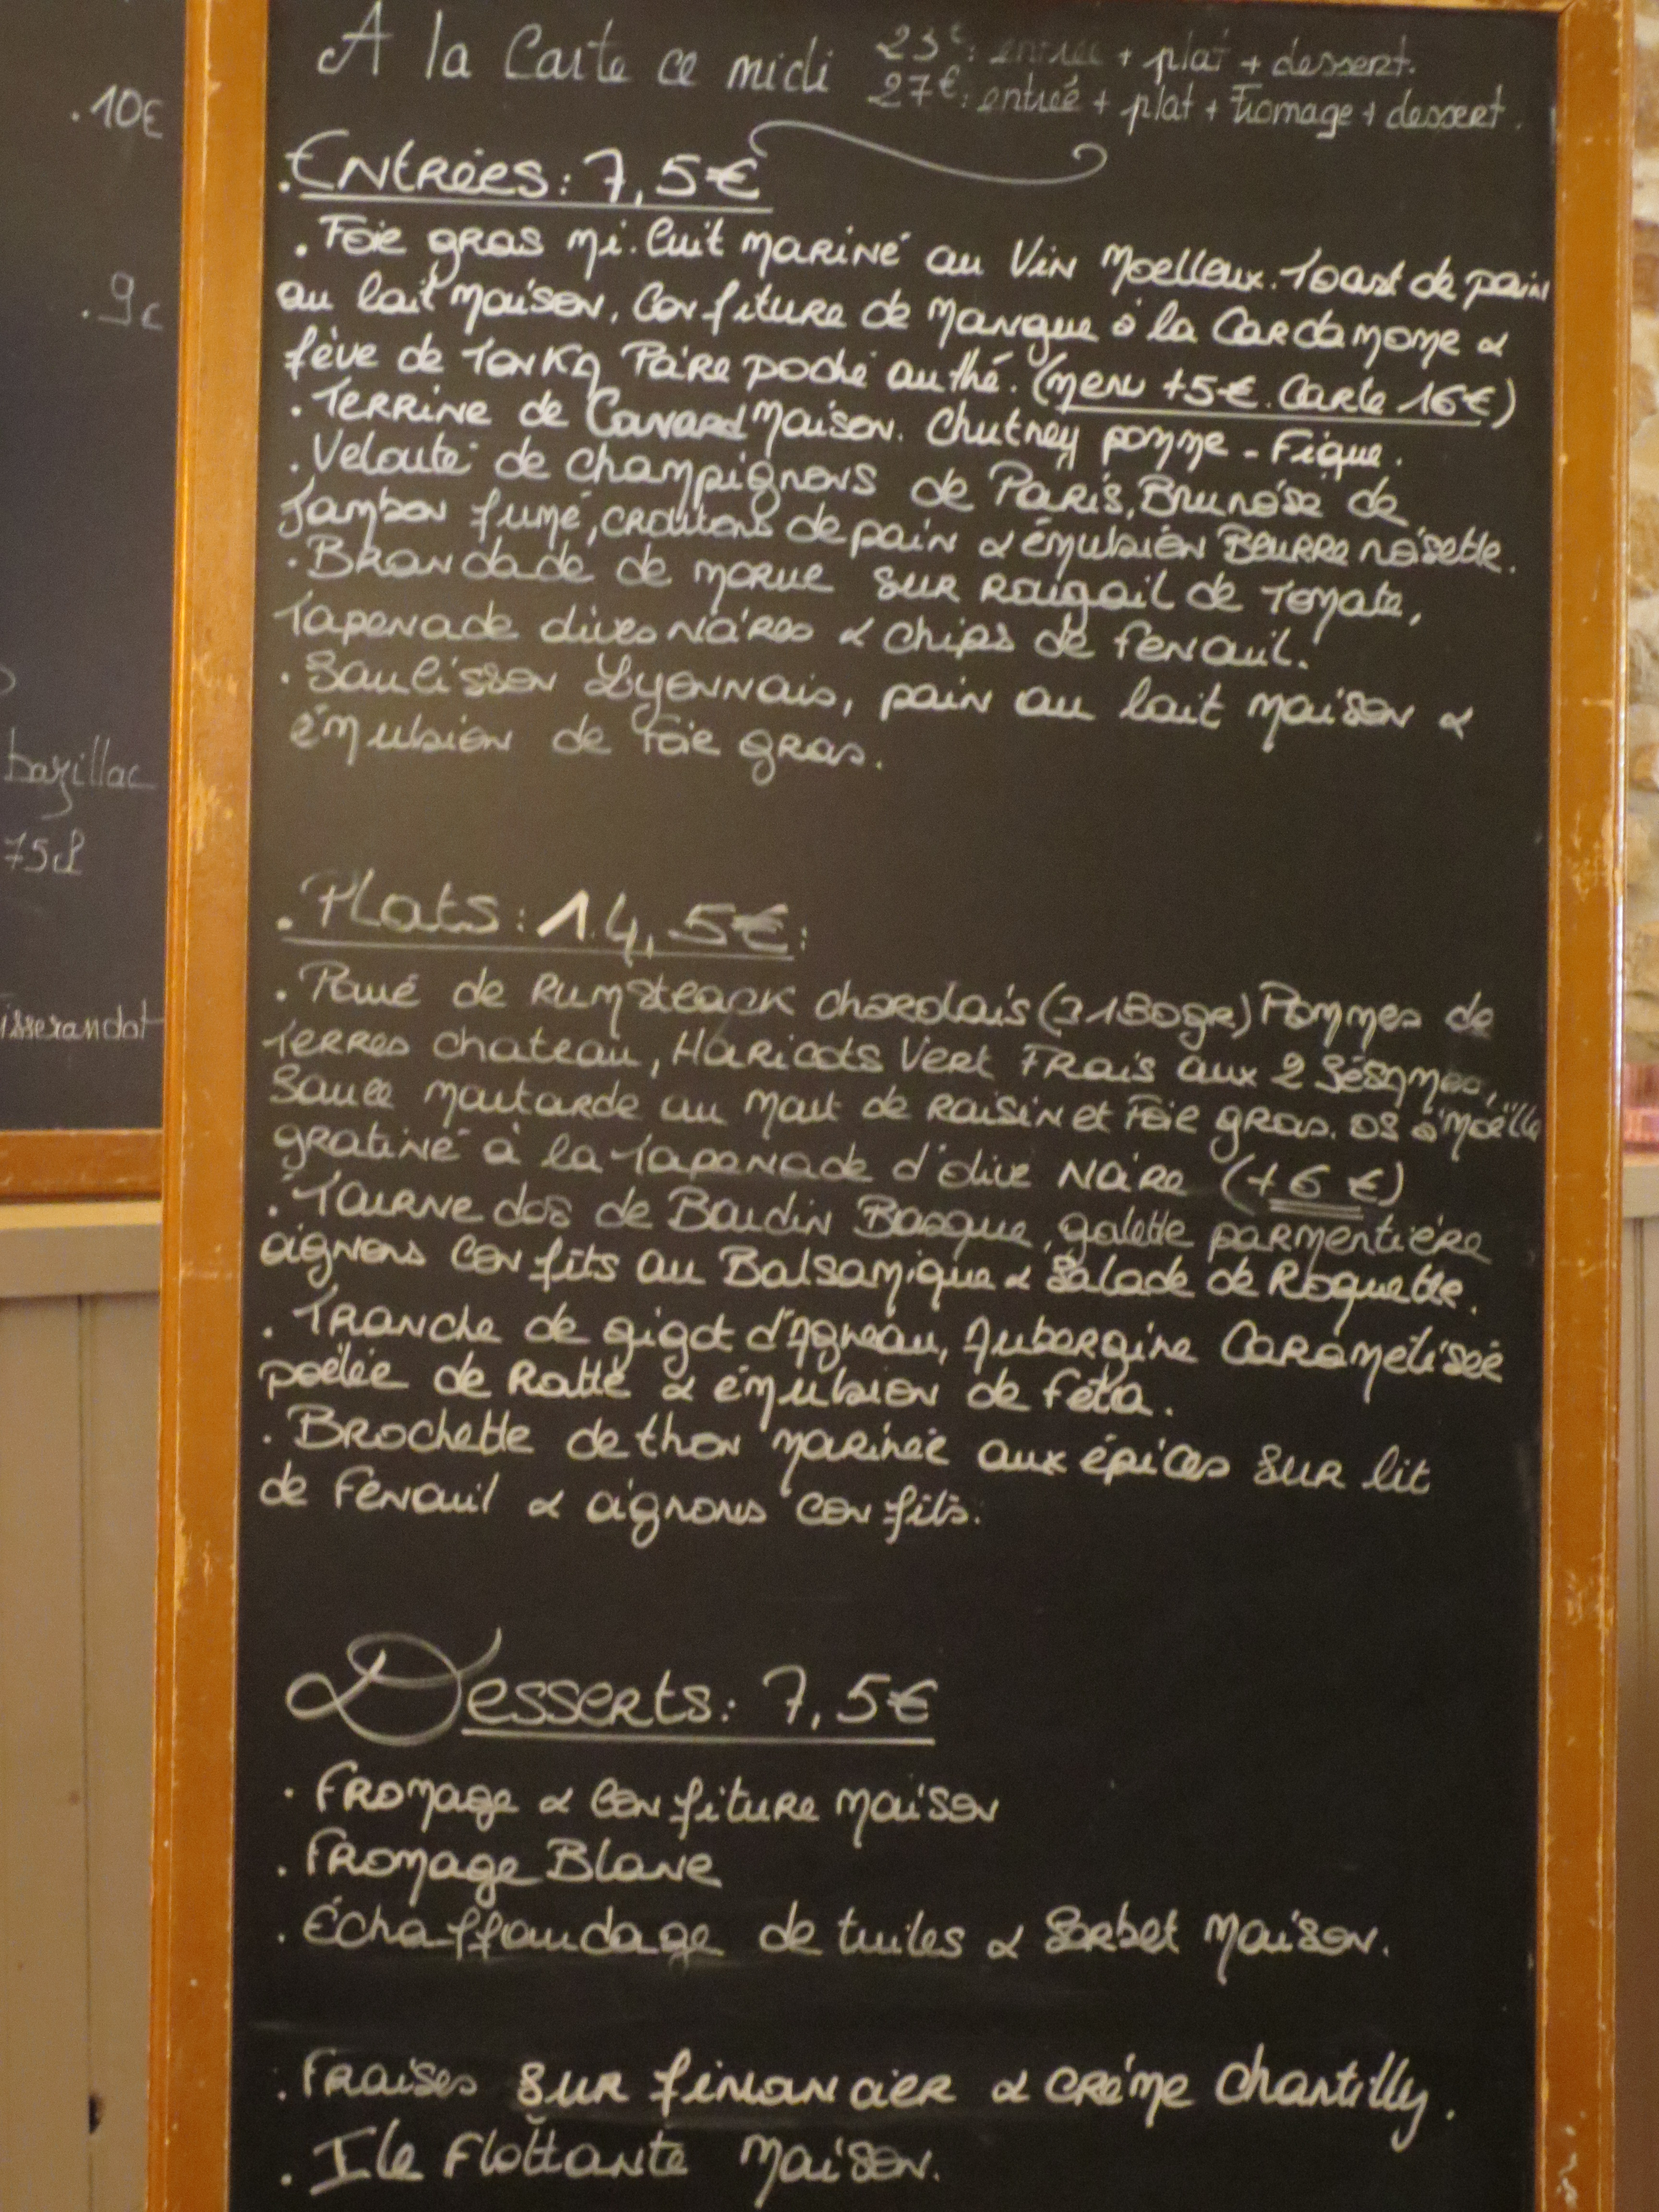 .10€
.9€
bazillac
75cl
isserandot
A la Carte ce midi
23€: entrée + plat + dessert.
27€: entrée + plat + fromage + dessert.
. Entrées: 7,5€
. Foie gras mi. Cuit mariné au Vin Moelleux. Toast de pain
au lait maison, Confiture de Mangue à la Cardamome &
fève de Tonka Poire poché au thé. (menu +5€. Carte 16€)
. Terrine de Canard Maison. Chutney pomme - Figue.
. Velouté de champignons de Paris, Brunoise de
Jambon fumé, croutons de pain & émulsion Beurre noisette.
. Brandade de morue sur Rougail de Tomate,
Tapenade olives noires & chips de fenouil.
. Saucisson Lyonnais, pain au lait maison &
émulsion de Foie gras.
. Plats: 14,5€:
. Pavé de Rumsteack charolais (±180gr) Pommes de
Terres chateau, Haricots Vert Frais aux 2 Sésames,
Sauce moutarde au mout de raisin et Foie gras. os à moëlle
gratiné à la Tapenade d'olive Noire (+6 €)
. Tourne dos de Boudin Basque, galette parmentière
oignons confits au Balsamique & Salade de Roquette.
. Tranche de gigot d'Agneau, Aubergine Caramélisée
poêlée de Ratte & émulsion de feta.
. Brochette de thon marinée aux épices sur lit
de fenouil & oignons confits.
Desserts: 7,5€
. Fromage & Confiture maison
. Fromage Blanc
. Échaffaudage de tuiles & Sorbet Maison.
. Fraises sur financier & crème chantilly.
. Ile flottante maison.